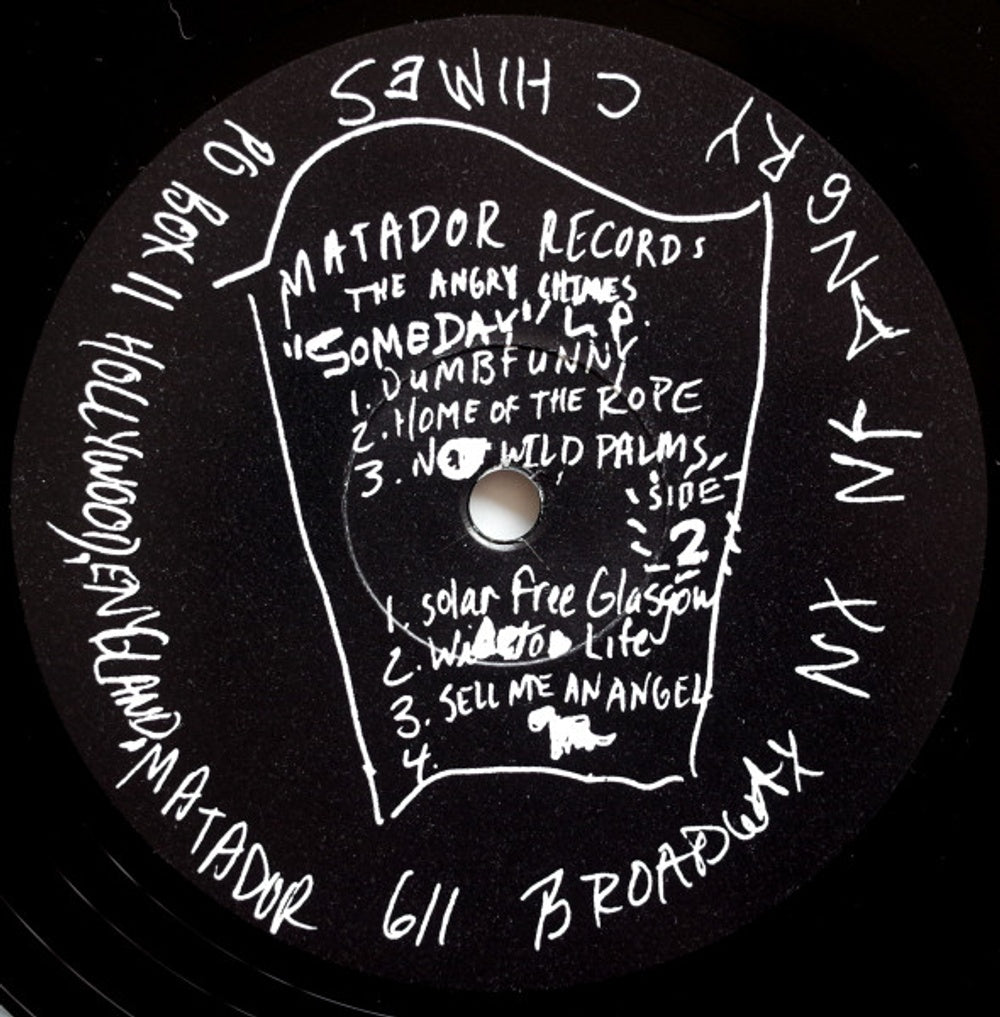 MATADOR RECORDS
THE ANGRY CHIMES
"SOMEDAY" L.P.
1. DUMBFUNNY
2. HOME OF THE ROPE
3. WILD PALMS
SIDE
2
1. solar free Glasgow
2. Life
3. SELL ME AN ANGEL
4.
PO BOX 11 HOLLYWOOD, ENGLAND, MATADOR 611 BROADWAY NY NY ANGRY CHIMES